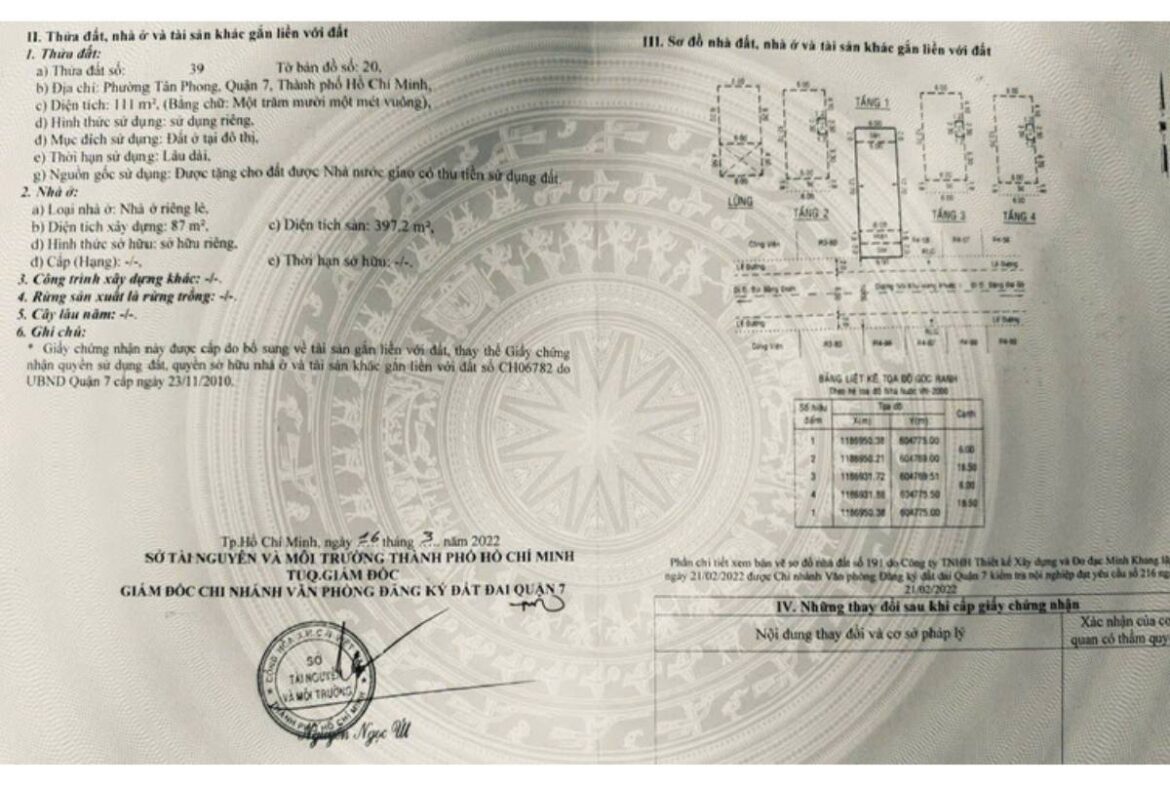 II. Thửa đất, nhà ở và tài sản khác gắn liền với đất
1. Thửa đất:
a) Thửa đất số: 39 Tờ bản đồ số: 20,
b) Địa chỉ: Phường Tân Phong, Quận 7, Thành phố Hồ Chí Minh,
c) Diện tích: 111 m², (Bằng chữ: Một trăm mười một mét vuông),
d) Hình thức sử dụng: sử dụng riêng,
đ) Mục đích sử dụng: Đất ở tại đô thị,
e) Thời hạn sử dụng: Lâu dài,
g) Nguồn gốc sử dụng: Được tặng cho đất được Nhà nước giao có thu tiền sử dụng đất.
2. Nhà ở:
a) Loại nhà ở: Nhà ở riêng lẻ,
b) Diện tích xây dựng: 87 m², c) Diện tích sàn: 397.2 m²,
d) Hình thức sở hữu: sở hữu riêng,
đ) Cấp (Hạng): -/-, e) Thời hạn sở hữu: -/-.
3. Công trình xây dựng khác: -/-.
4. Rừng sản xuất là rừng trồng: -/-.
5. Cây lâu năm: -/-.
6. Ghi chú:
* Giấy chứng nhận này được cấp do bổ sung về tài sản gắn liền với đất, thay thế Giấy chứng
nhận quyền sử dụng đất, quyền sở hữu nhà ở và tài sản khác gắn liền với đất số CH06782 do
UBND Quận 7 cấp ngày 23/11/2010.
Tp.Hồ Chí Minh, ngày 16 tháng 3 năm 2022
SỞ TÀI NGUYÊN VÀ MÔI TRƯỜNG THÀNH PHỐ HỒ CHÍ MINH
TUQ.GIÁM ĐỐC
GIÁM ĐỐC CHI NHÁNH VĂN PHÒNG ĐĂNG KÝ ĐẤT ĐAI QUẬN 7
SỞ
TÀI NGUYÊN
VÀ MÔI TRƯỜNG
THÀNH PHỐ HỒ CHÍ MINH
Nguyễn Ngọc
III. Sơ đồ nhà đất, nhà ở và tài sản khác gắn liền với đất
TẦNG 1
LỬNG
TẦNG 2
TẦNG 3
TẦNG 4
Công Viên
Lề Đường
Lề Đường
Lề Đường
Lề Đường
Công Viên
BẢNG LIỆT KÊ TỌA ĐỘ GÓC RANH
Theo hệ tọa độ Nhà Nước VN-2000
Số hiệu điểm Tọa độ Cạnh
X(m) Y(m)
1 1186950.38 604775.00
6.00
2 1186950.21 604769.00
18.50
3 1186931.72 604769.51
6.00
4 1186931.88 604775.50
18.50
1 1186950.38 604775.00
Phần chi tiết xem bản vẽ sơ đồ nhà đất số 191 do Công ty TNHH Thiết kế Xây dựng và Đo đạc Minh Khang
ngày 21/02/2022 được Chi nhánh Văn phòng Đăng ký đất đai Quận 7 kiểm tra nội nghiệp đạt yêu cầu số 216
21/02/2022
IV. Những thay đổi sau khi cấp giấy chứng nhận
Nội dung thay đổi và cơ sở pháp lý
Xác nhận của cơ
quan có thẩm quy